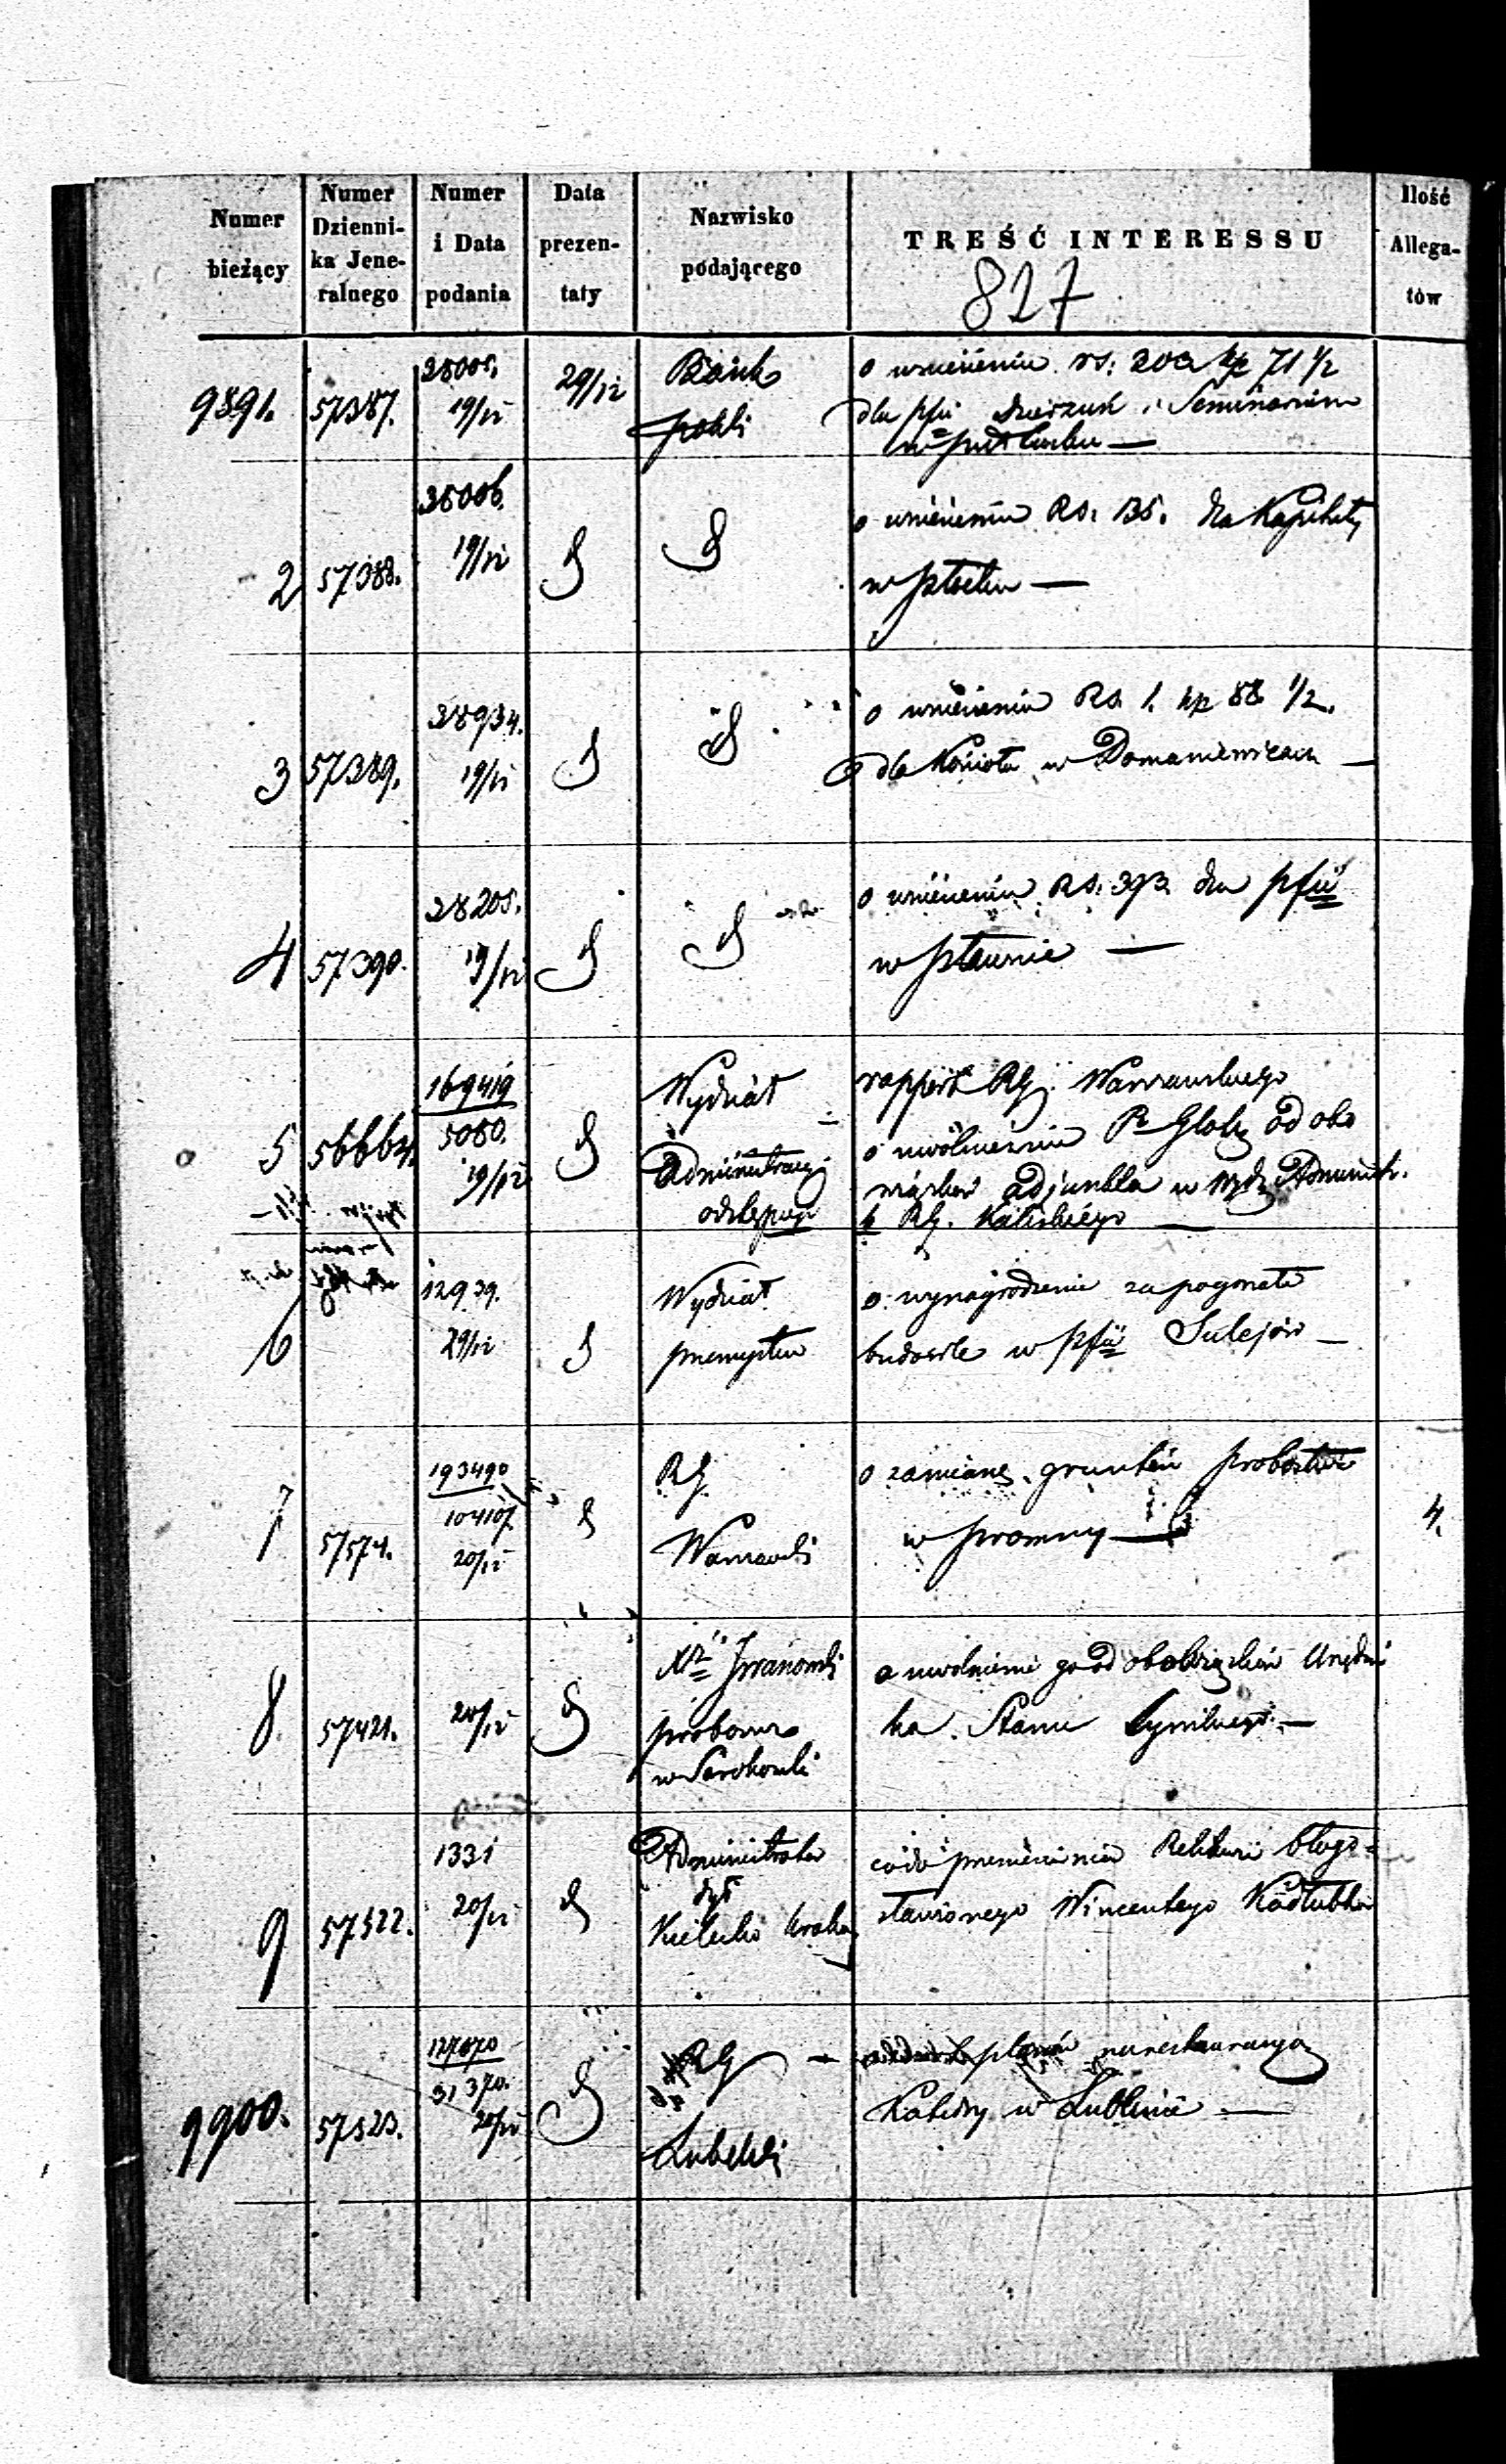 Numer bieżący | Numer Dzienni-ka Jene-ralnego | Numer i Data podania | Data prezen-taty | Nazwisko podającego | TREŚĆ INTERESSU | Ilość Allega-tów
827
9891. | 57387. | 28005. 19/12 | 29/12 | Bank polski | o wniesieniu rs: 202 kp 71 1/2
dla pfii i Seminarium
w
2 | 57388. | 28006. 19/12 | o wniesieniu Rs. 135. dla Kapituły
w Płocku —
3 | 57389. | 28934. 19/12 | o wniesieniu Rs. 1. kp 88 1/2.
dla Kościoła w Domaniewicach —
4 | 57390. | 28205. 19/12 | o wniesieniu Rs. 393. dla pfii
w Pławnie —
5 | 56664. | 169419 5080. 19/12 | Wydział Administracyj | rapport RG. Warszawskiego
o uwolnienie od obo
wiązków adjunkta w Wydz. Administr.
RG. Kaliskiego —
6 | 12939. 29/12 | Wydział przemysłu | o wynagrodzenie za pogorzałe
budowle w pfii Sulejów —
7 | 57574. | 193490 104107. 20/12 | RG Warszawski | o zamianę gruntów probostwa | 4.
w Promny —
8. | 57421. | 20/12 | Xdz Iwanowski proboszcz w Serokomli | o uwolnienie go od obowiązków Urzędni
ka Stanu Cywilnego —
9 | 57522. | 1331 20/12 | Administrator dyec Kielecko Krakow | co do przeniesienia Relikwii błogo=
sławionego Wincentego Kadłubka
9900. | 57523. | 127670 31370. 20/12 | RG Lubelski | planów na restauracyą
Katedry w Lublinie —